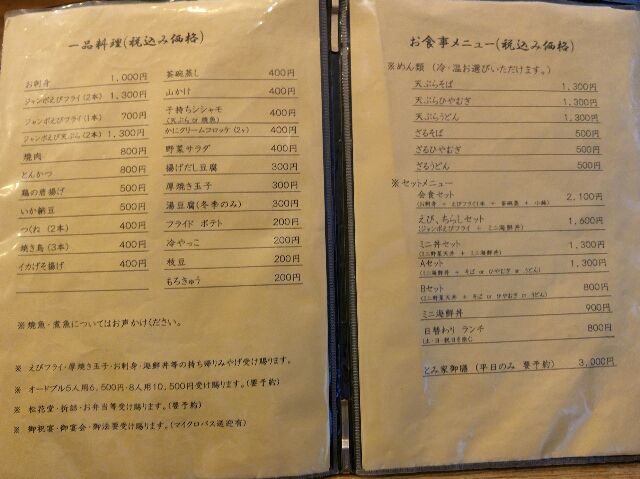 一品料理(税込み価格)
お刺身 1,000円
ジャンボえびフライ(2本) 1,300円
ジャンボえびフライ(1本) 700円
ジャンボえび天ぷら(2本) 1,300円
焼肉 800円
とんかつ 800円
鶏の唐揚げ 500円
いか納豆 500円
つくね (2本) 400円
焼き鳥(3本) 400円
イカげそ揚げ 400円
茶碗蒸し 400円
山かけ 400円
子持ちシシャモ 400円
(天ぷら or 焼魚)
かにクリームコロッケ(2ヶ) 400円
野菜サラダ 400円
揚げだし豆腐 300円
厚焼き玉子 300円
湯豆腐(冬季のみ) 300円
フライド ポテト 200円
冷やっこ 200円
枝豆 200円
もろきゅう 200円
※焼魚・煮魚についてはお声かけください。
※ えびフライ・厚焼き玉子・お刺身・海鮮丼等の持ち帰りみやげ受け賜ります。
※ オードブル5人用6,500円・8人用10,500円受け賜ります。(要予約)
※ 松花堂・折詰・お弁当等受け賜ります。(要予約)
※ 御祝宴・御宴会・御法要受け賜ります。(マイクロバス送迎有)
お食事メニュー(税込み価格)
※めん類 (冷・温お選びいただけます。)
天ぷらそば 1,300円
天ぷらひやむぎ 1,300円
天ぷらうどん 1,300円
ざるそば 500円
ざるひやむぎ 500円
ざるうどん 500円
※セットメニュー
会食セット 2,100円
(お刺身 + えびフライ1本 + 茶碗蒸 + 小鉢)
えび、ちらしセット 1,600円
(ジャンボえびフライ + ミニ海鮮丼)
ミニ丼セット 1,300円
(ミニ野菜天丼 + ミニ海鮮丼)
Aセット 1,300円
(ミニ海鮮丼 + そば or ひやむぎ or うどん)
Bセット 800円
(ミニ野菜天丼 + そば or ひやむぎ or うどん)
ミニ海鮮丼 900円
日替わり ランチ 800円
(土・日・祝日を除く)
とみ家御膳 (平日のみ 要予約) 3,000円